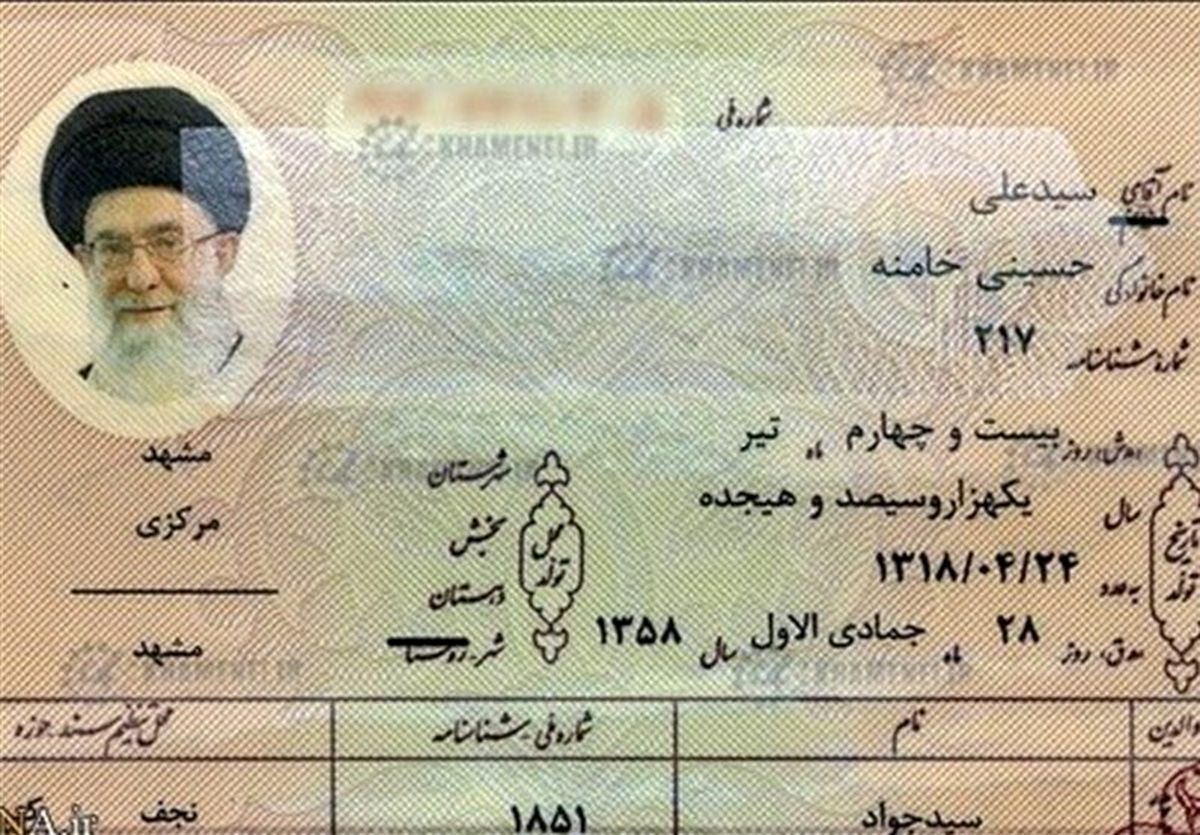 KHAMENEI.IR
شماره ملی
KHAMENEI.IR
نام آقای سیدعلی
نام خانوادگی حسینی خامنه
KHAMENEI.IR
شماره شناسنامه ۲۱۷
روز بیست و چهارم ماه تیر
سال یکهزاروسیصد و هیجده
به عدد ۱۳۱۸/۰۴/۲۴
روز ۲۸ ماه جمادی الاول سال ۱۳۵۸
تاریخ تولد
محل تولد
شهرستان مشهد
بخش مرکزی
دهستان
شهر روستا مشهد
KHAMENEI.IR
والدین نام شماره ملی - شناسنامه محل تنظیم سند - حوزه
سیدجواد ۱۸۵۱ نجف
NA.ir